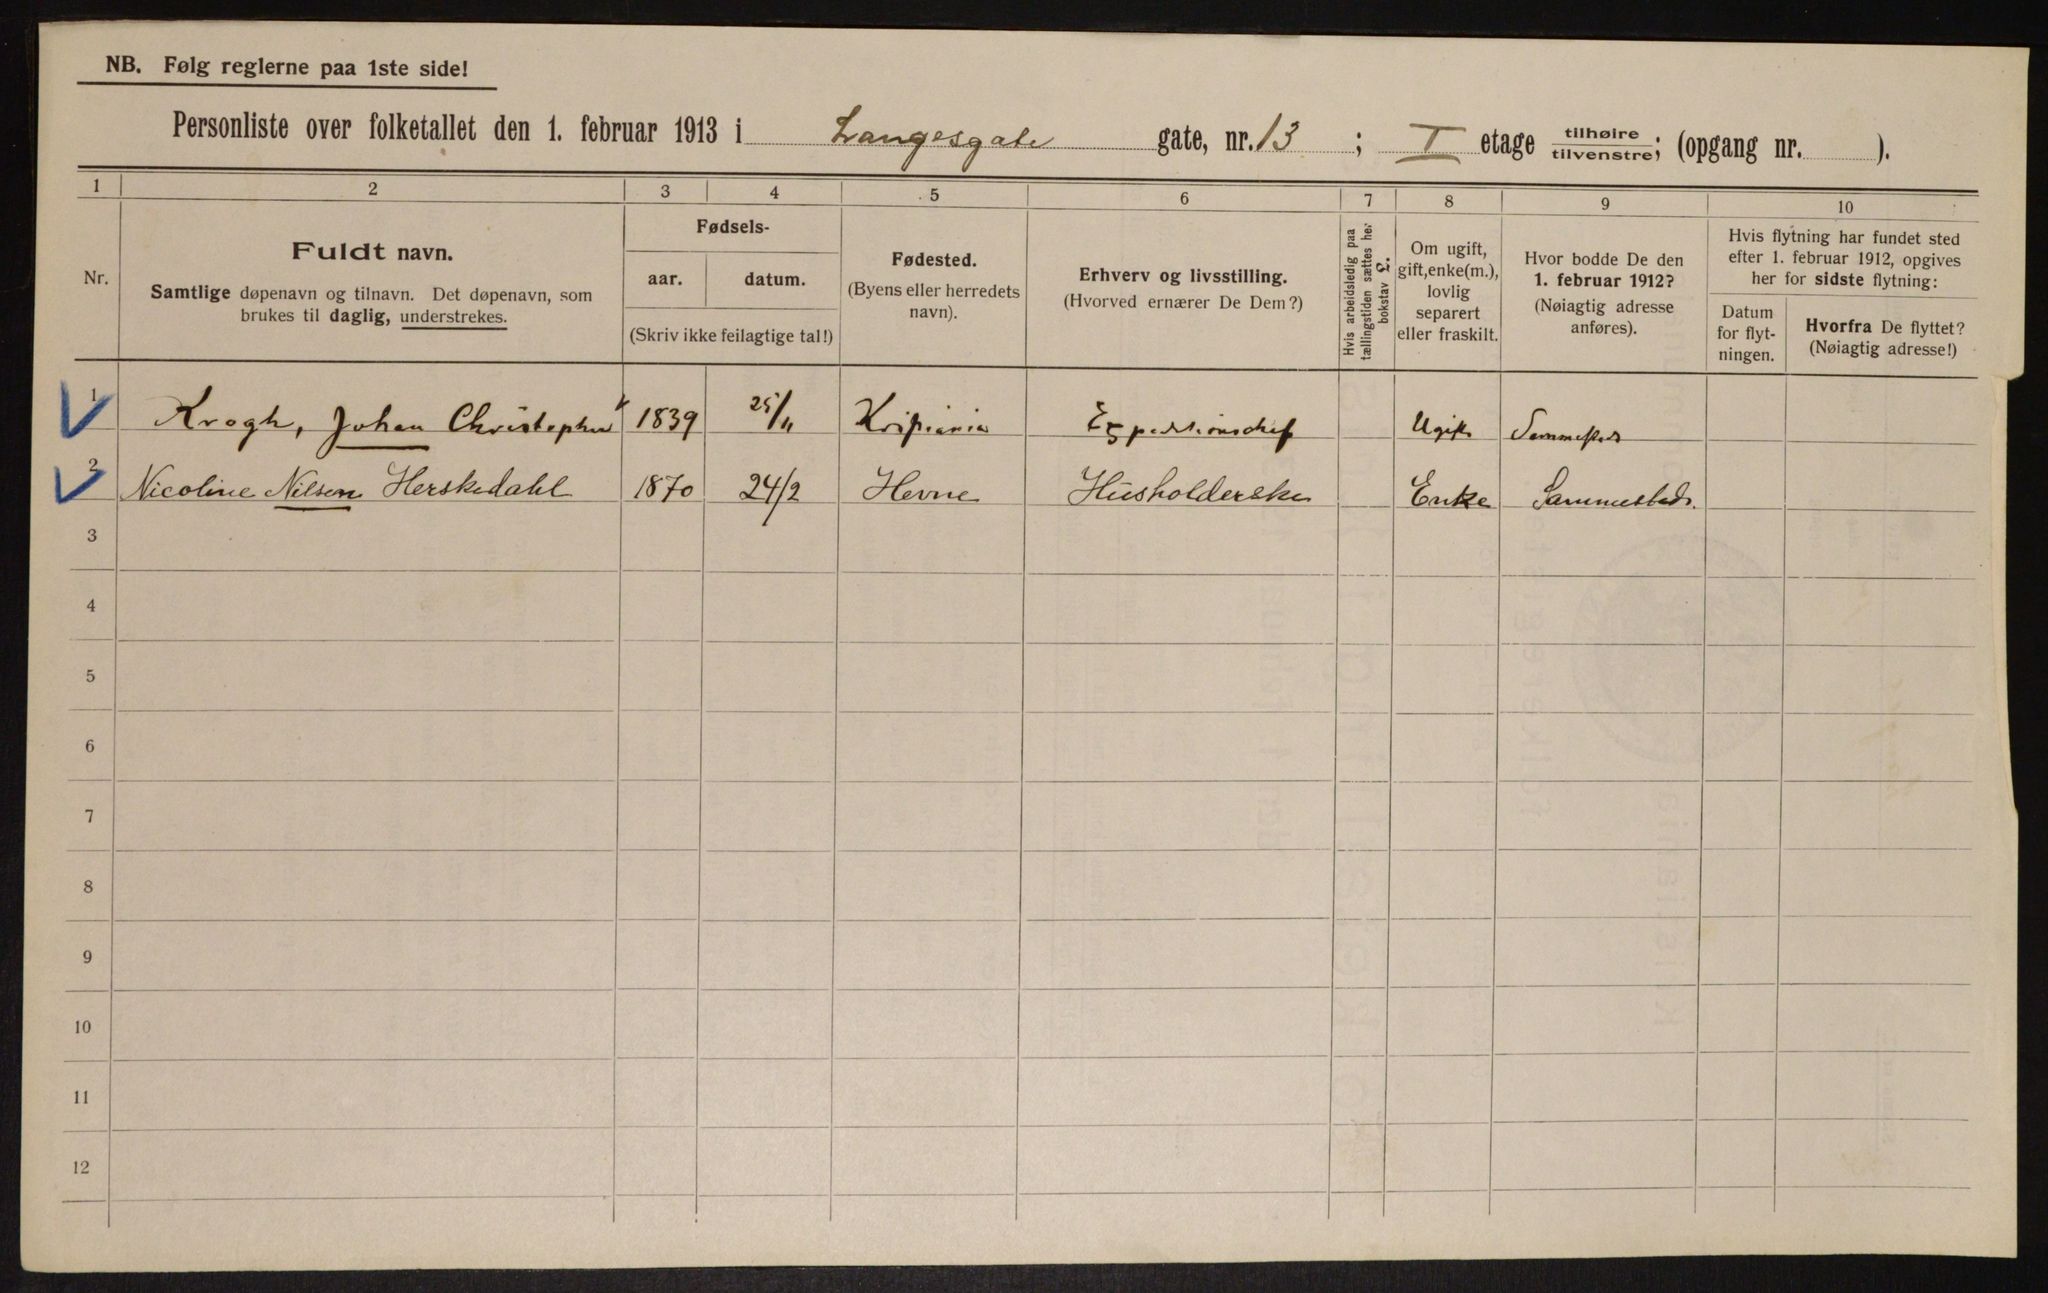 NB. Følg reglerne paa 1ste side!
Personliste over folketallet den 1. februar 1913 i Langesgate gate, nr. 13 ; I etage tilhøire/tilvenstre; (opgang nr. ).
1 2 3 4 5 6 7 8 9 10
Nr.
Fuldt navn.
Samtlige døpenavn og tilnavn. Det døpenavn, som
brukes til daglig, understrekes.
Fødsels-
aar. datum.
(Skriv ikke feilagtige tal!)
Fødested.
(Byens eller herredets
navn).
Erhverv og livsstilling.
(Hvorved ernærer De Dem?)
Hvis arbeidsledig paa
tællingstiden sættes her
bokstav £.
Om ugift,
gift, enke(m.),
lovlig
separert
eller fraskilt.
Hvor bodde De den
1. februar 1912?
(Nøiagtig adresse
anføres).
Hvis flytning har fundet sted
efter 1. februar 1912, opgives
her for sidste flytning:
Datum
for flyt-
ningen.
Hvorfra De flyttet?
(Nøiagtig adresse!)
1 Krogh, Johan Christopher 1839 25/11 Kristiania Expeditionschef Ugift Sammesteds
2 Nicoline Nilsen Herskedahl 1870 24/2 Hevne Husholderske Enke Sammesteds.
3
4
5
6
7
8
9
10
11
12